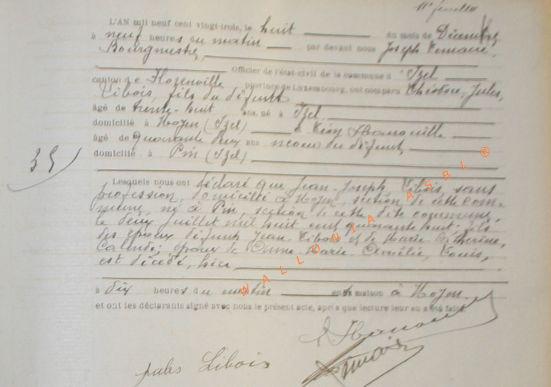 11e feuillet
L'AN mil neuf cent vingt-trois, le huit du mois de Décembre,
à neuf heures du matin par devant nous Joseph
Bourgmestre,
Officier de l'état-civil de la commune d' Izel
canton de Florenville province de Luxembourg, ont comparu Christian, Jules,
Libois, fils du défunt
âgé de trente-huit ans, né à Izel,
domicilié à Moyen (Izel) &
âgé de quarante ans du défunt,
domicilié à Pin (Izel)
35
Lesquels nous ont déclaré que Jean-Joseph, Libois, sans
profession, domicilié à Moyen, section de cette com-
mune, né à Pin, section de cette dite commune,
le deux juillet mil huit cent quarante huit; fils
des époux défunts Jean Libois et de Marie Thérèse,
époux de Marie
est décédé, hier
à dix heures du matin en sa maison à Moyen.
et ont les déclarants signé avec nous le présent acte, après que lecture leur en a été faite
WALLONIA ASBL ®
Jules Libois